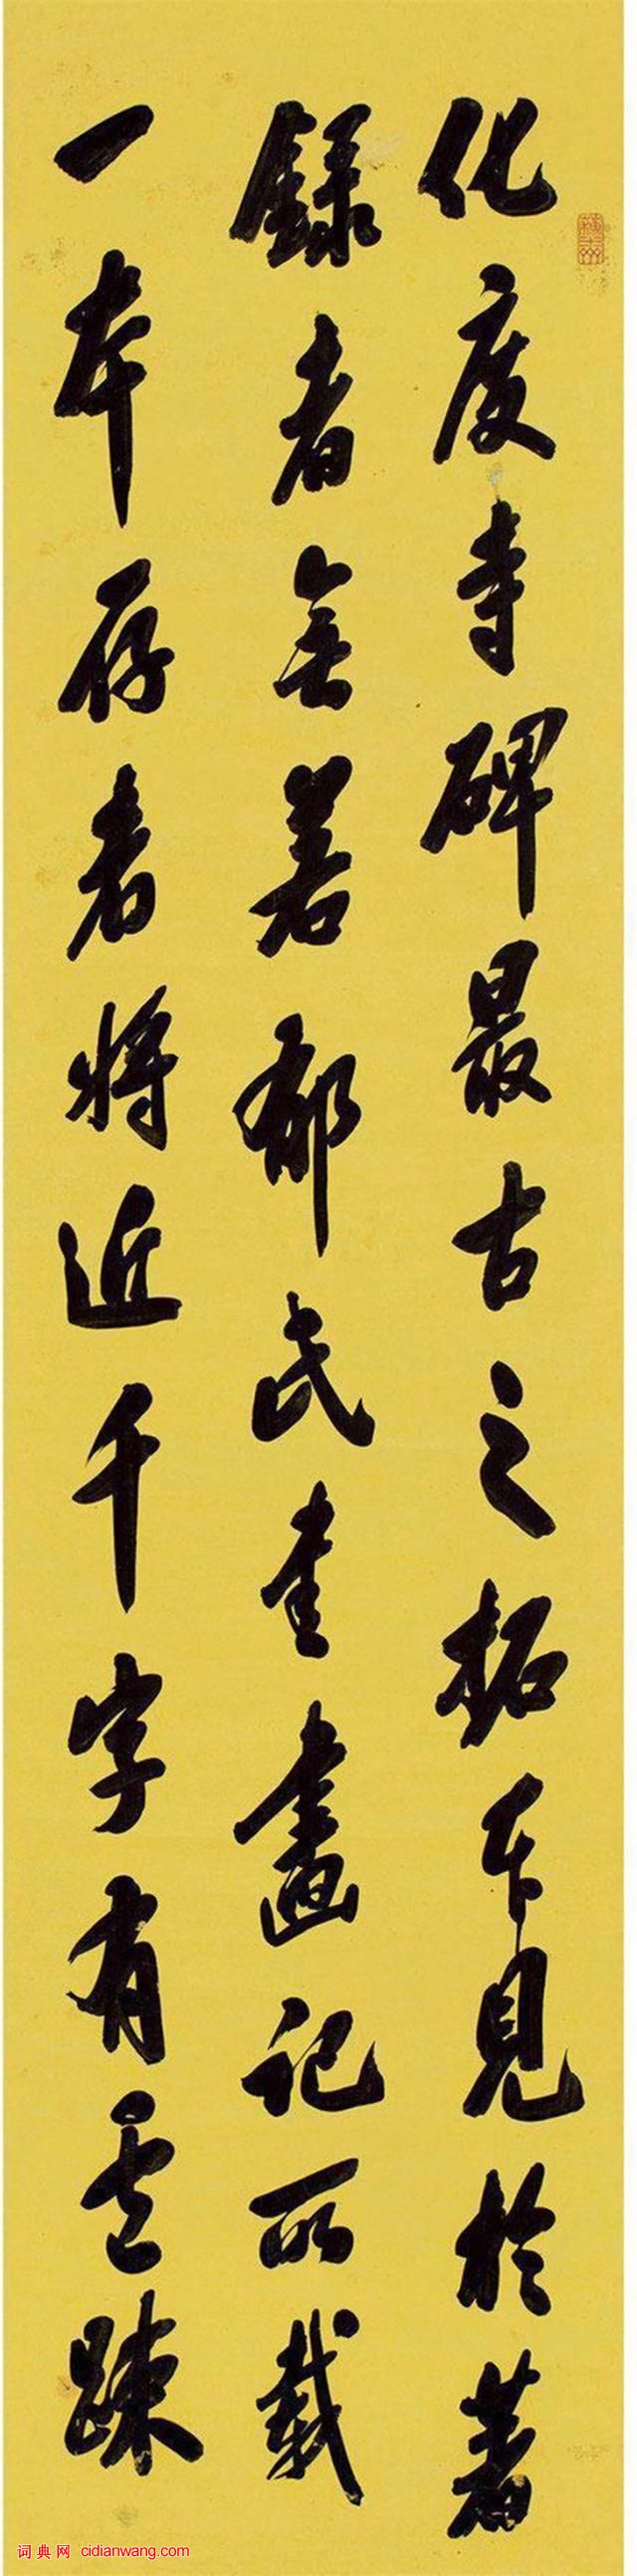 化度寺碑最古之拓本見於著
錄者無若郁氏書畫記所載
一本存者將近千字有踈
词典网 cidianwang.com